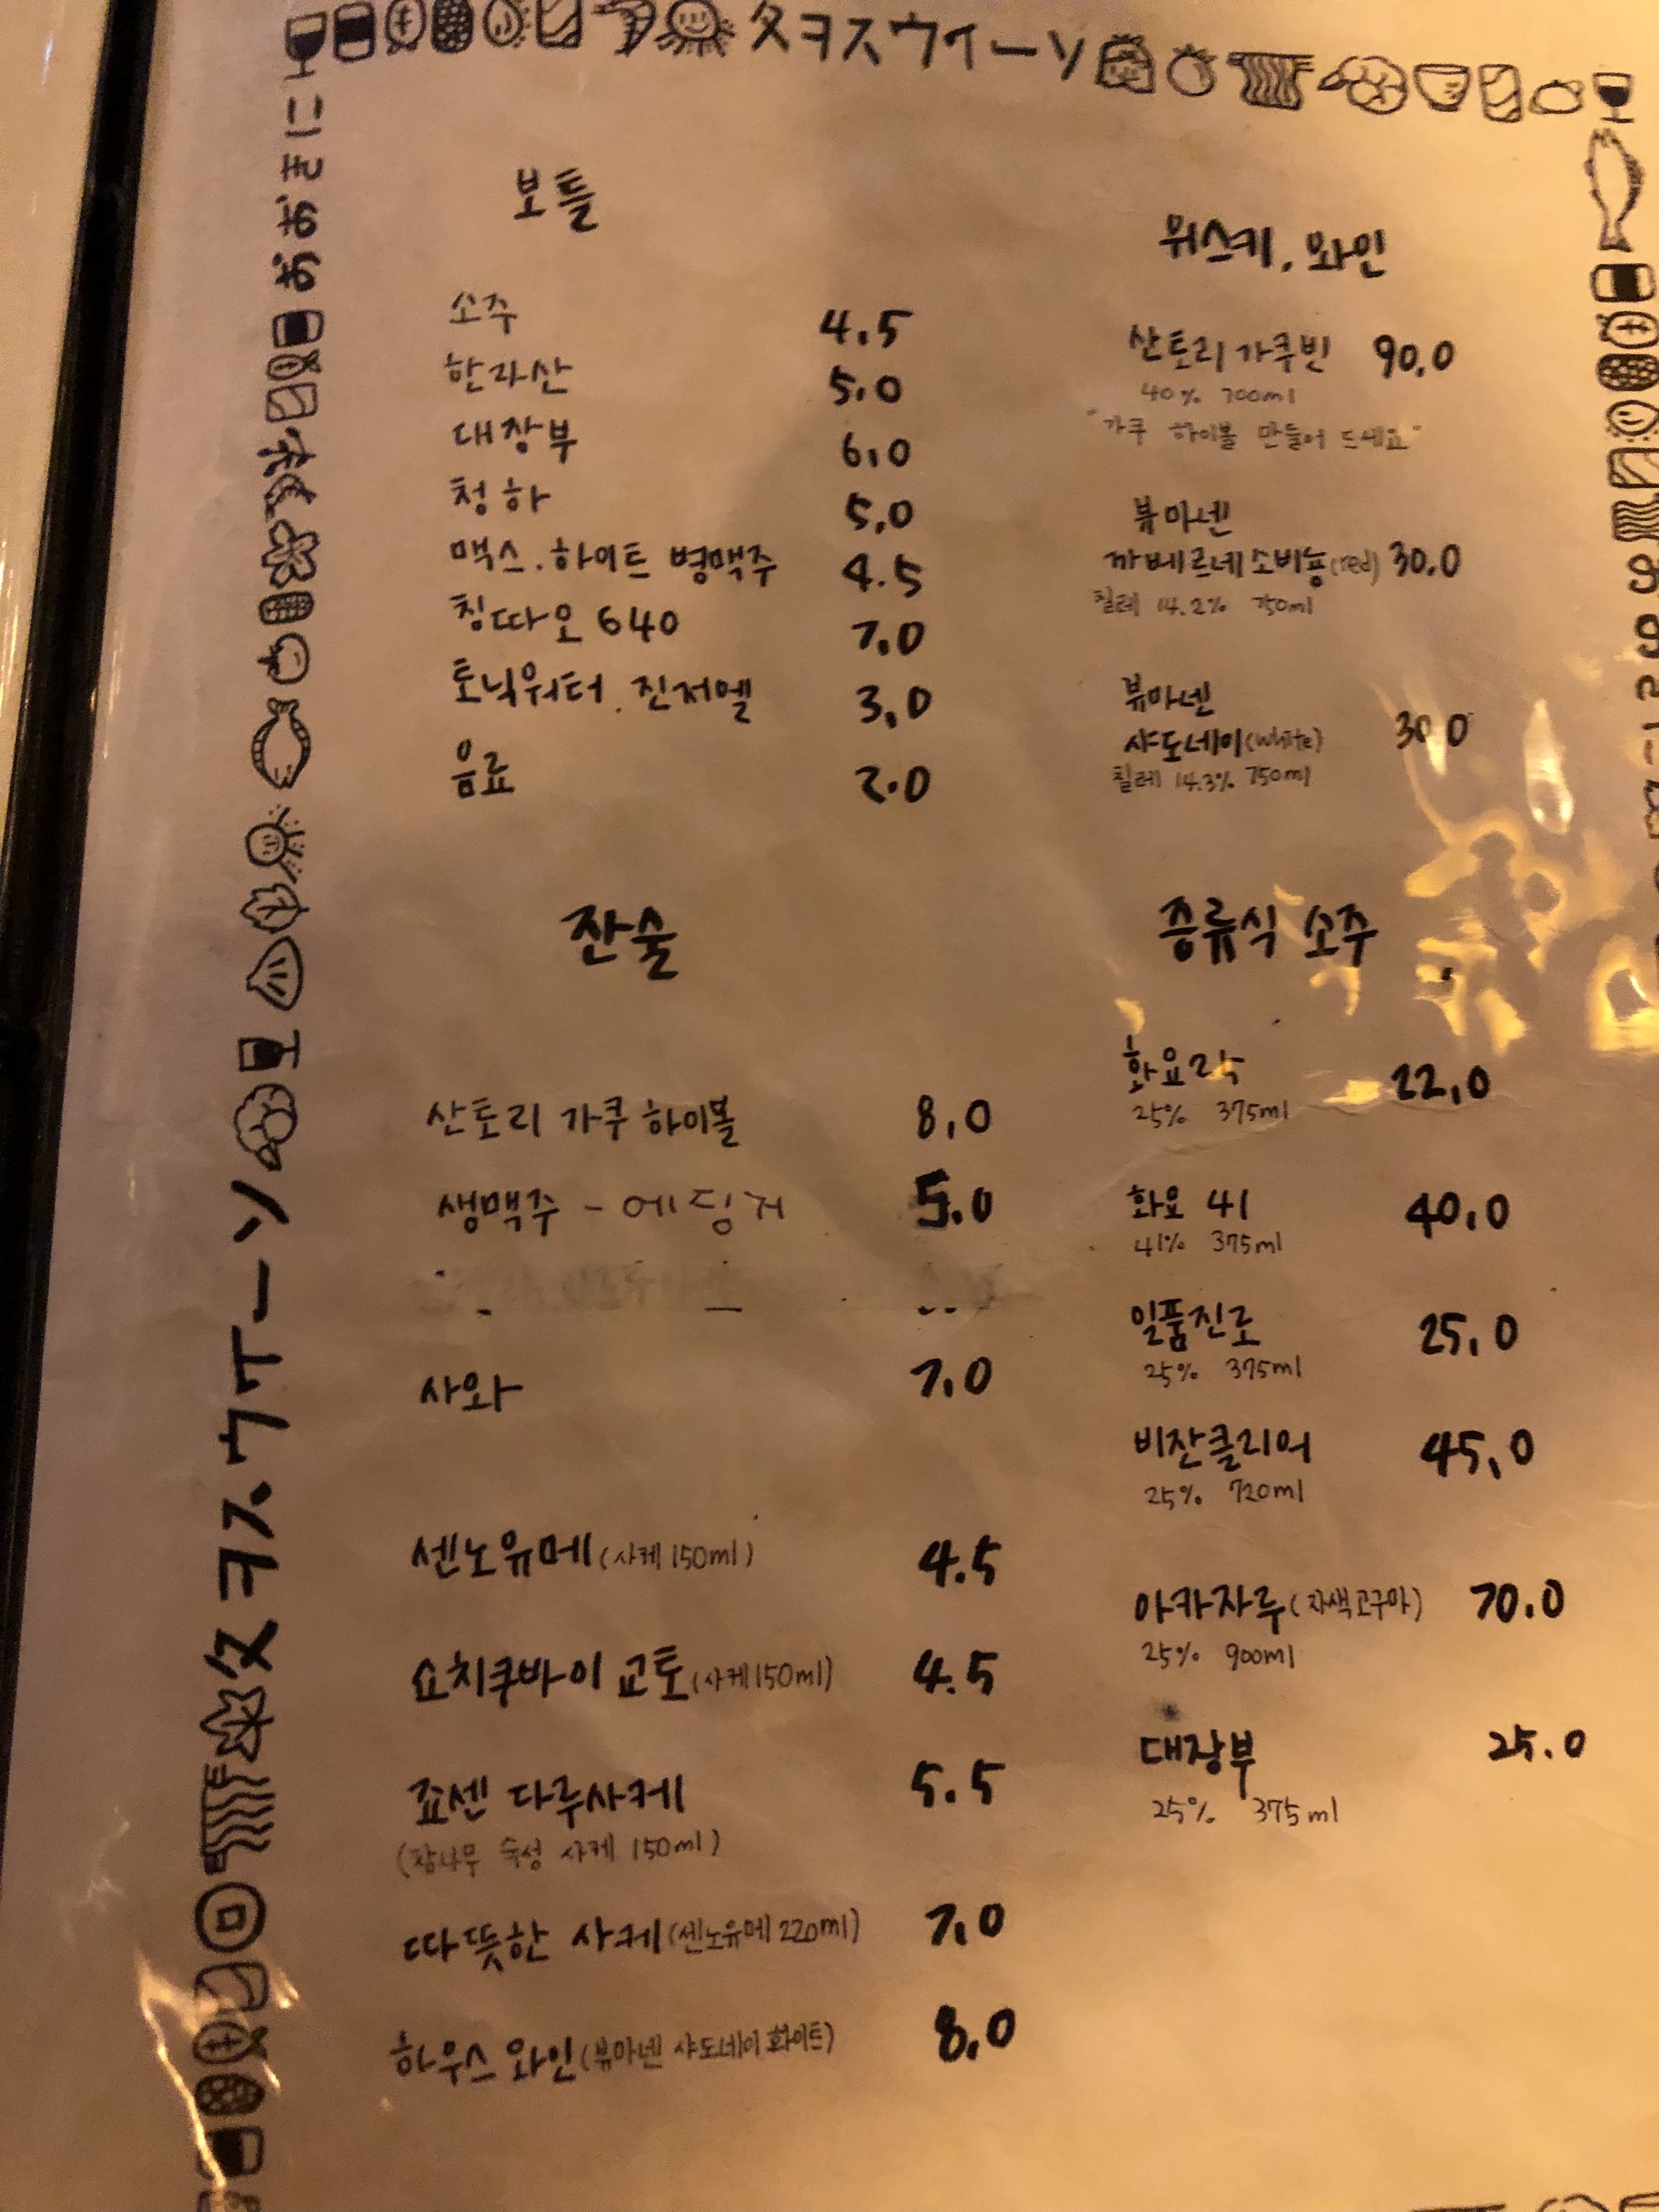 タヲスウィーン
보틀
소주 4.5
한라산 5.0
대장부 6.0
청하 5.0
맥스.하이트 병맥주 4.5
칭따오 640 7.0
토닉워터. 진저엘 3.0
음료 2.0
위스키. 와인
산토리 가쿠빈 90.0
40% 700ml
"가쿠 하이볼 만들어 드세요"
뷰마넨
까베르네소비뇽(red) 30.0
칠레 14.2% 750ml
뷰마넨
샤도네이(white) 30.0
칠레 14.3% 750ml
잔술
산토리 가쿠 하이볼 8.0
생맥주 - 에딩거 5.0
사와 7.0
센노유메(사케 150ml) 4.5
쇼치쿠바이 교토(사케150ml) 4.5
죠센 다루사케 5.5
(삼나무 숙성 사케 150ml)
따뜻한 사케(센노유메 220ml) 7.0
하우스 와인(뷰마넨 샤도네이 화이트) 8.0
증류식 소주
화요25 22.0
25% 375ml
화요 41 40.0
41% 375ml
일품진로 25.0
25% 375ml
비잔클리어 45.0
25% 720ml
아카자루(자색고구마) 70.0
25% 900ml
대장부 25.0
25% 375ml
タヲスウィーン